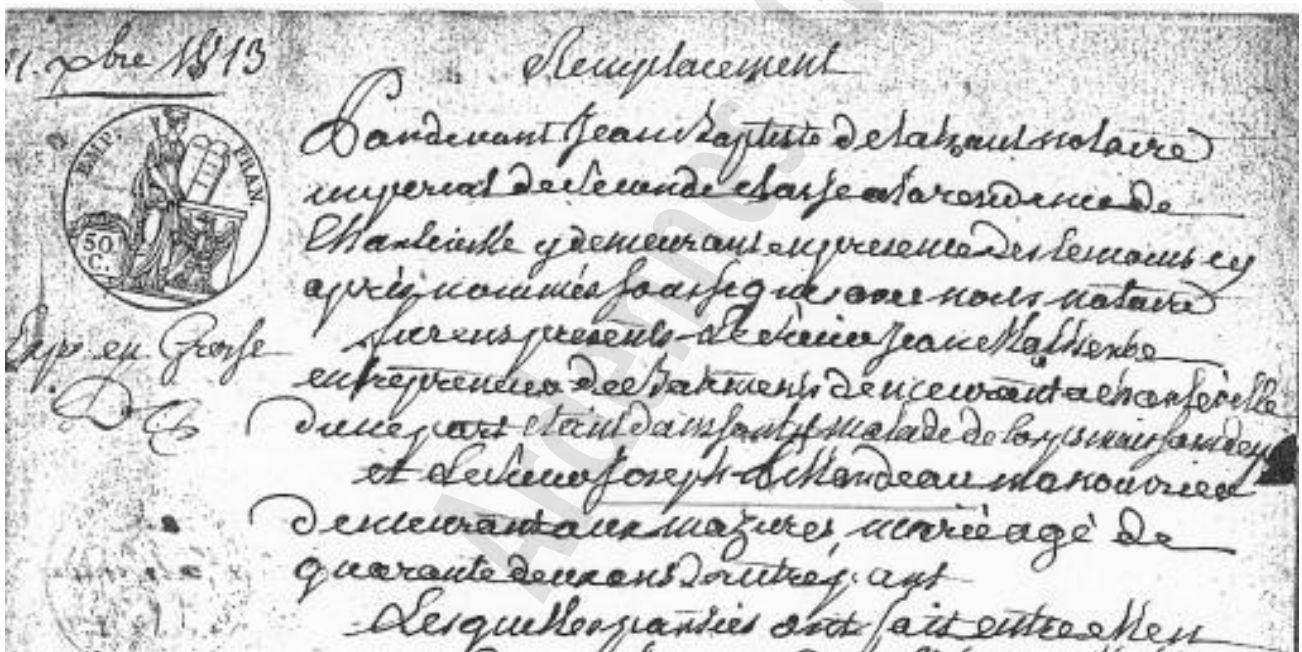 xbre 1813
Remplacement
EMP. FRAN.
50 C.
Pardevant Jean Baptiste Delahaut notaire
imperial de seconde classe a la residence de
Charleville y demeurant en presence des temoins cy
après nommés soussignés avec nous notaire
Exp en Grosse
furent presents le sieur Jean
entrepreneur de Batiments demeurant a charleville
d'une part etant dans son lit malade de corps mais sain d'esp
et le sieur Joseph manouvrier
demeurant aux mazures, marié agé de
quarante deux ans d'autre part
Lesquelles parties ont fait entre elles
Ardennes